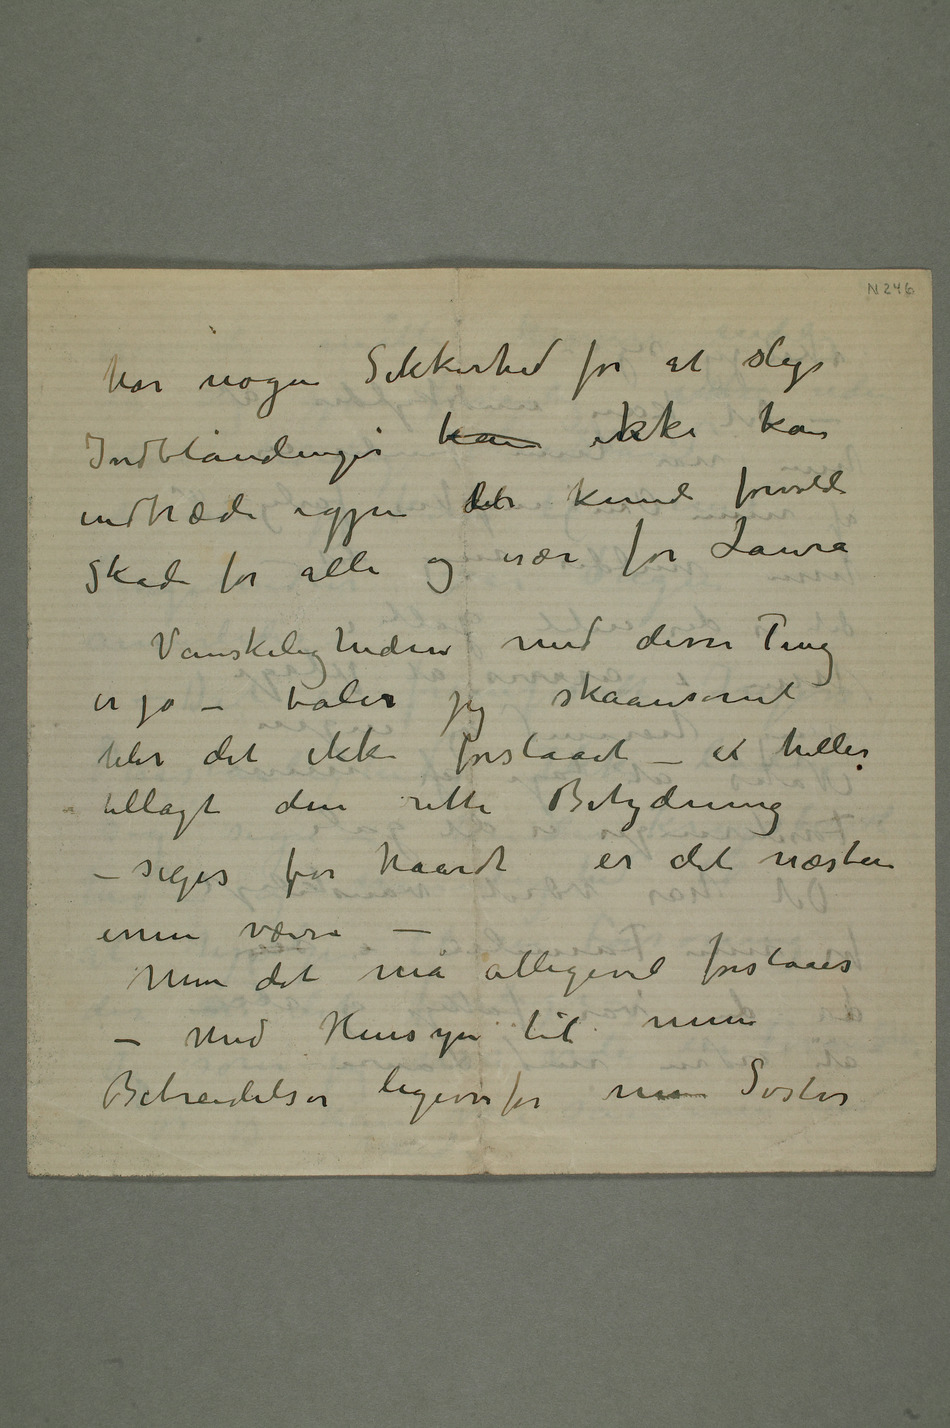 N 246
har nogen Sikkerhed for at slige
Indblandinger kan ikke kan
indtræde igjen det kunde forvolde
Skade for alle og især for Laura
Vanskeligheden med disse Ting
er jo – taler jeg skaansomt
blir det ikke forstaaet – et heller
tillagt den rette Betydning
– siges for haardt er det næsten
ennu værre –
Men det må alligevel forstaaes
– Med Hensyn til mine
Betreidelser ligeoverfor min Søster